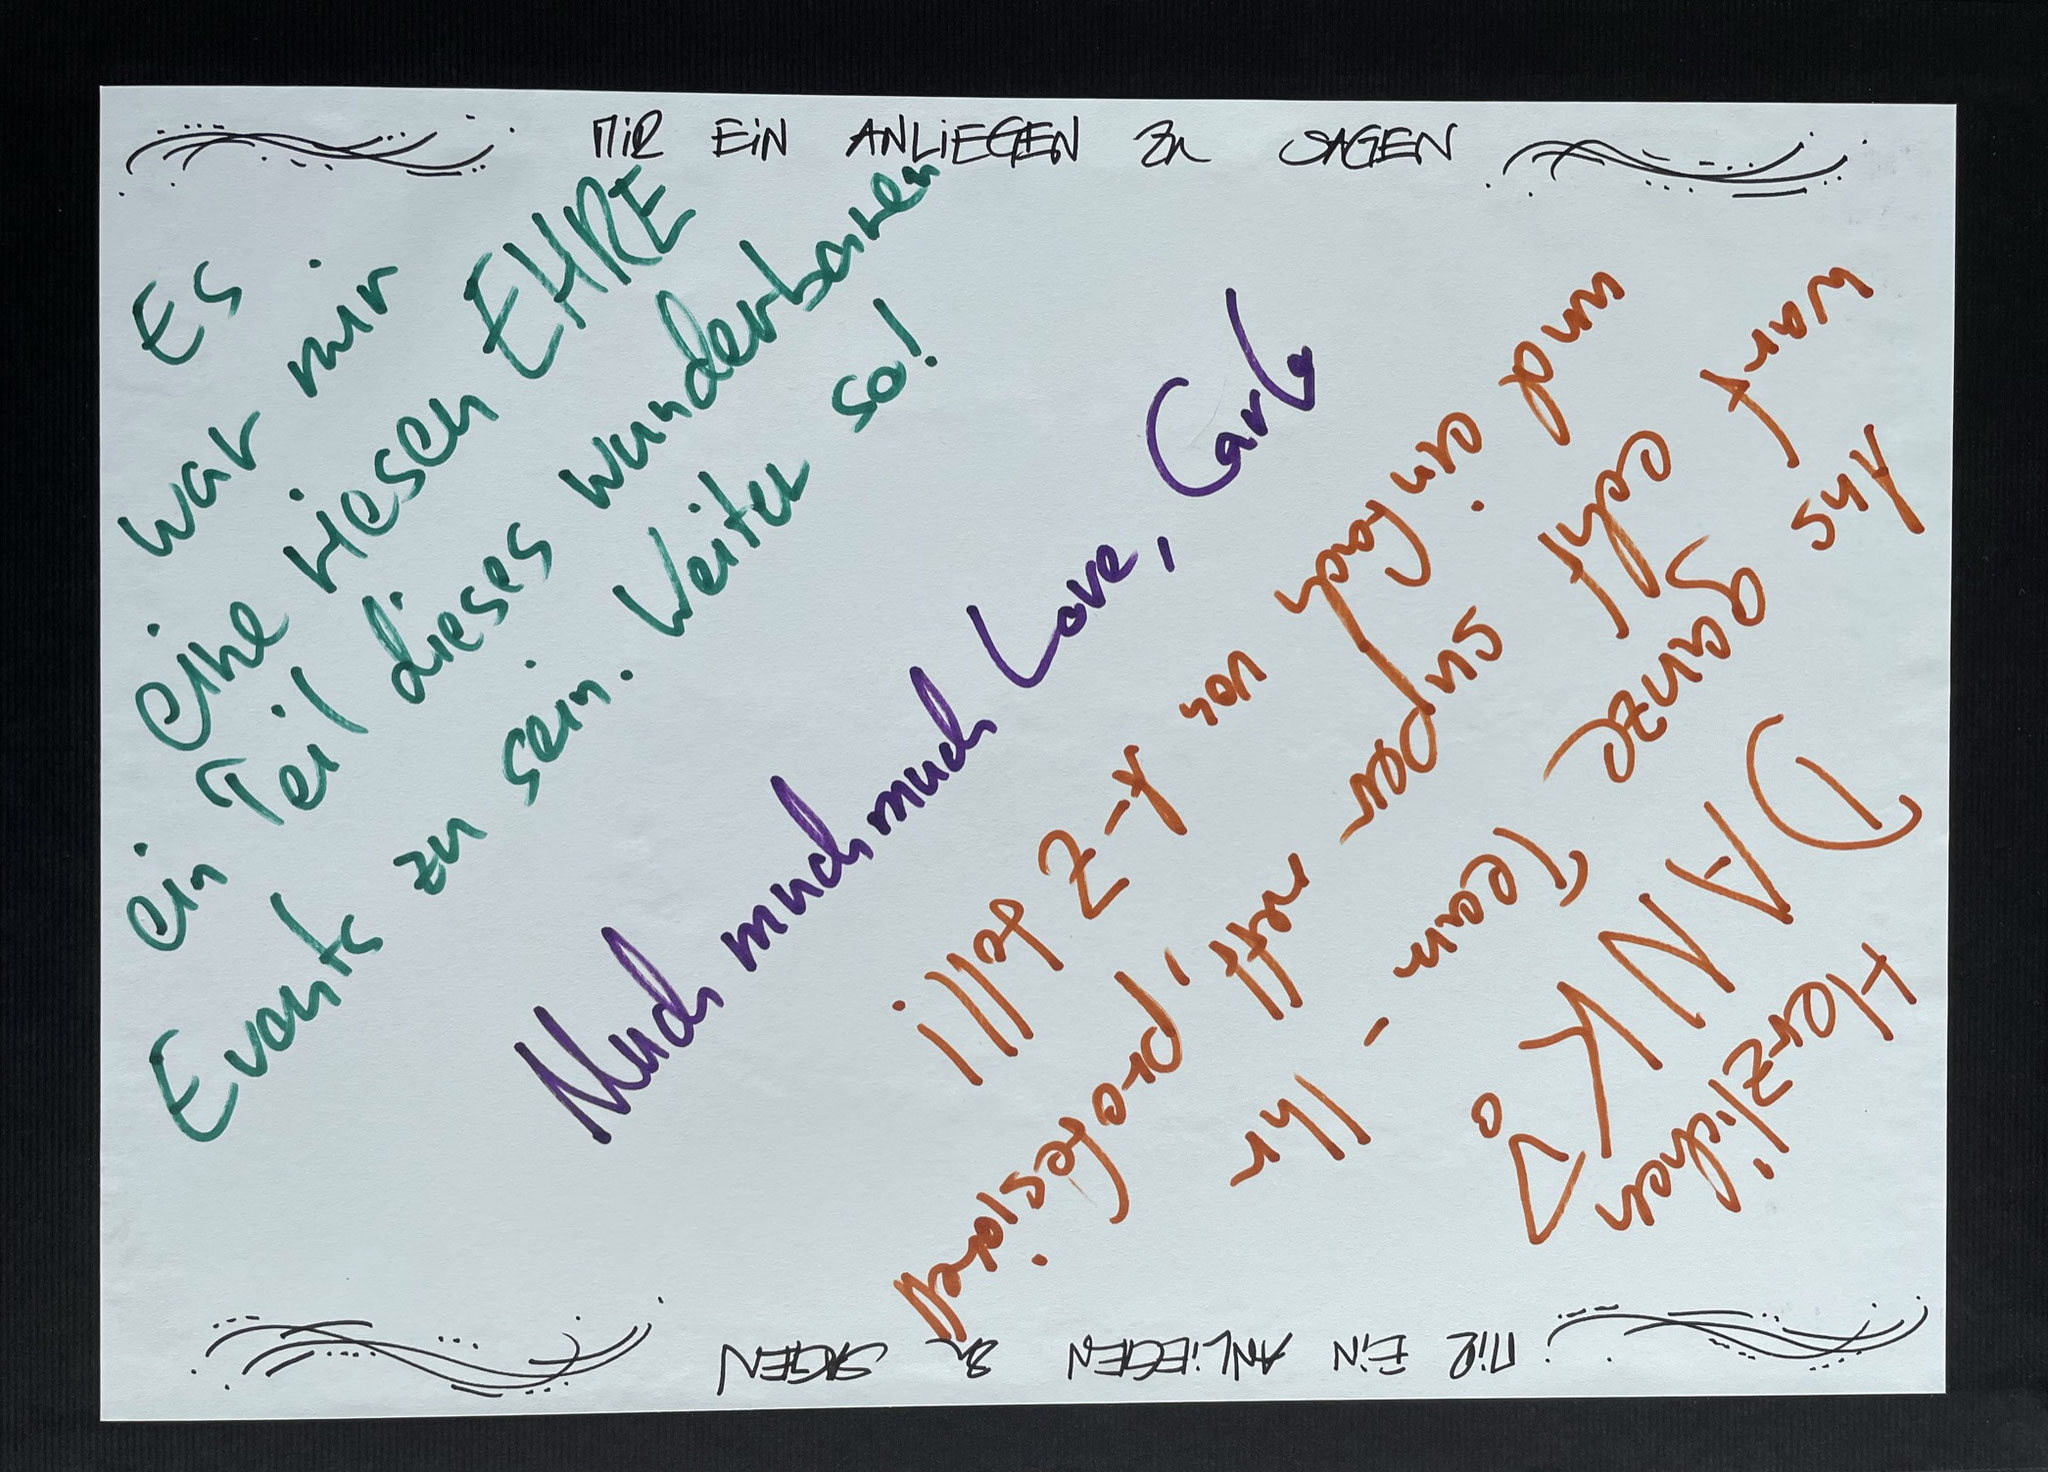 MIR EIN ANLIEGEN ZU SAGEN
Es
war mir
eine riesen EHRE
ein Teil dieses wunderbaren
Events zu sein. Weiter so!
Much much much Love, Carlo
Herzlichen
DANK!
Ans ganze Team - Ihr
wart echt super nett, profesionell
und einfach von A-Z toll!
MIR EIN ANLIEGEN ZU SAGEN